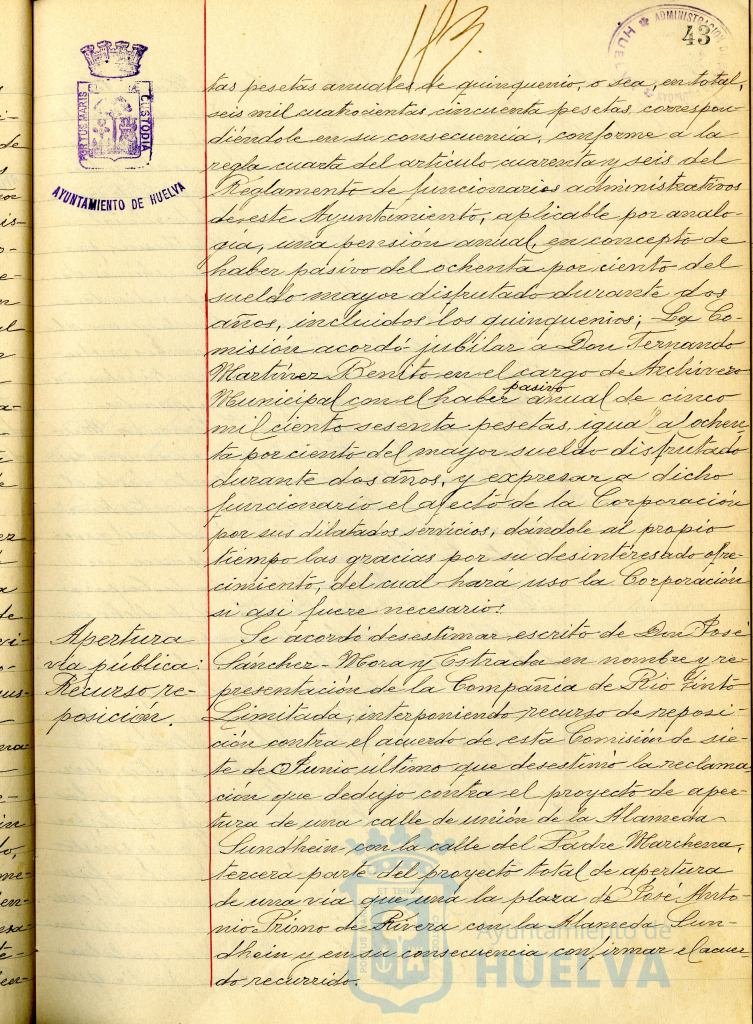 113.
43
ADMINISTRACION
HUELVA
PORTUS MARIS
CUSTODIA
AYUNTAMIENTO DE HUELVA
tas pesetas anuales de quinquenio, o sea, en total,
seis mil cuatrocientas cincuenta pesetas, correspon-
diéndole en su consecuencia, conforme a la
regla cuarta del artículo cuarenta y seis del
Reglamento de funcionarios administrativos
de este Ayuntamiento, aplicable por analo-
gía, una pensión anual, en concepto de
haber pasivo del ochenta por ciento del
sueldo mayor disfrutado durante dos
años, incluidos los quinquenios; La Co-
misión acordó jubilar a Don Fernando
Martínez Benito en el cargo de Archivero
Municipal con el haber pasivo anual de cinco
mil ciento sesenta pesetas, igual al ochen-
ta por ciento del mayor sueldo disfrutado
durante dos años, y expresar a dicho
funcionario el afecto de la Corporación
por sus dilatados servicios, dándole al propio
tiempo las gracias por su desinteresado ofre-
cimiento, del cual hará uso la Corporación
si así fuere necesario.
Apertura
vía pública:
Recurso re-
posición.
Se acordó desestimar escrito de Don José
Sánchez-Mora y Estrada en nombre y re-
presentación de la Compañía de Rio Tinto
Limitada, interponiendo recurso de reposi-
ción contra el acuerdo de esta Comisión de sie-
te de Junio último que desestimó la reclama
ción que dedujo contra el proyecto de aper-
tura de una calle de unión de la Alameda
Sundhein con la calle del Padre Marchena,
tercera parte del proyecto total de apertura
de una vía que una la plaza de José Anto-
nio Primo de Rivera con la Alameda Sun-
dhein y en su consecuencia confirmar el acuer-
do recurrido.
Ayuntamiento de
HUELVA